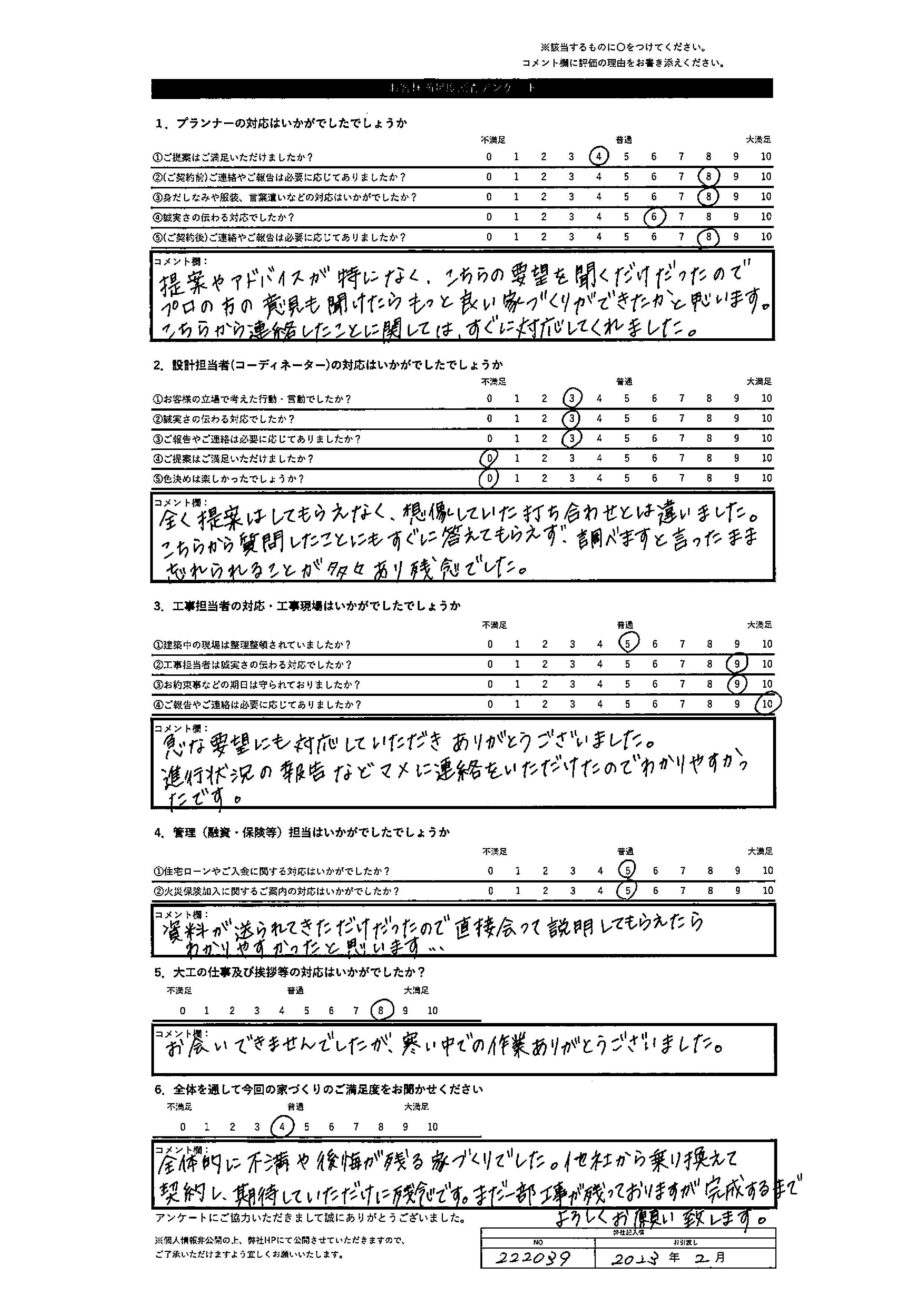 ※該当するものに〇をつけてください。
コメント欄に評価の理由をお書き添えください。
アンケート
1．プランナーの対応はいかがでしたでしょうか
不満足 普通 大満足
①ご提案はご満足いただけましたか？ 0 1 2 3 4 5 6 7 8 9 10
②(ご契約前)ご連絡やご報告は必要に応じてありましたか？ 0 1 2 3 4 5 6 7 8 9 10
③身だしなみや服装、言葉遣いなどの対応はいかがでしたか？ 0 1 2 3 4 5 6 7 8 9 10
④誠実さの伝わる対応でしたか？ 0 1 2 3 4 5 6 7 8 9 10
⑤(ご契約後)ご連絡やご報告は必要に応じてありましたか？ 0 1 2 3 4 5 6 7 8 9 10
コメント欄：
提案やアドバイスが特になく、こちらの要望を聞くだけだったので
プロの方の意見も聞けたらもっと良い家づくりができたかと思います。
こちらから連絡したことに関しては、すぐに対応してくれました。
2．設計担当者(コーディネーター)の対応はいかがでしたでしょうか
不満足 普通 大満足
①お客様の立場で考えた行動・言動でしたか？ 0 1 2 3 4 5 6 7 8 9 10
②誠実さの伝わる対応でしたか？ 0 1 2 3 4 5 6 7 8 9 10
③ご報告やご連絡は必要に応じてありましたか？ 0 1 2 3 4 5 6 7 8 9 10
④ご提案はご満足いただけましたか？ 0 1 2 3 4 5 6 7 8 9 10
⑤色決めは楽しかったでしょうか？ 0 1 2 3 4 5 6 7 8 9 10
コメント欄：
全く提案はしてもらえなく、想像していた打ち合わせとは違いました。
こちらから質問したことにもすぐに答えてもらえず、調べますと言ったまま
忘れられることが多々あり残念でした。
3．工事担当者の対応・工事現場はいかがでしたでしょうか
不満足 普通 大満足
①建築中の現場は整理整頓されていましたか？ 0 1 2 3 4 5 6 7 8 9 10
②工事担当者は誠実さの伝わる対応でしたか？ 0 1 2 3 4 5 6 7 8 9 10
③お約束事などの期日は守られておりましたか？ 0 1 2 3 4 5 6 7 8 9 10
④ご報告やご連絡は必要に応じてありましたか？ 0 1 2 3 4 5 6 7 8 9 10
コメント欄：
急な要望にも対応していただきありがとうございました。
進行状況の報告などマメに連絡をいただけたのでわかりやすかっ
たです。
4．管理（融資・保険等）担当はいかがでしたでしょうか
不満足 普通 大満足
①住宅ローンやご入金に関する対応はいかがでしたか？ 0 1 2 3 4 5 6 7 8 9 10
②火災保険加入に関するご案内の対応はいかがでしたか？ 0 1 2 3 4 5 6 7 8 9 10
コメント欄：
資料が送られてきただけだったので直接会って説明してもらえたら
わかりやすかったと思います…
5．大工の仕事及び挨拶等の対応はいかがでしたか？
不満足 普通 大満足
0 1 2 3 4 5 6 7 8 9 10
コメント欄：
お会いできませんでしたが、寒い中での作業ありがとうございました。
6．全体を通して今回の家づくりのご満足度をお聞かせください
不満足 普通 大満足
0 1 2 3 4 5 6 7 8 9 10
コメント欄：
全体的に不満や後悔が残る家づくりでした。他社から乗り換えて
契約し、期待していただけに残念です。まだ一部工事が残っておりますが完成するまで
よろしくお願い致します。
アンケートにご協力いただきまして誠にありがとうございました。
※個人情報非公開の上、弊社HPにて公開させていただきますので、
ご了承いただけますよう宜しくお願いいたします。
弊社記入欄
NO お引渡し
222039 2023 年 2 月